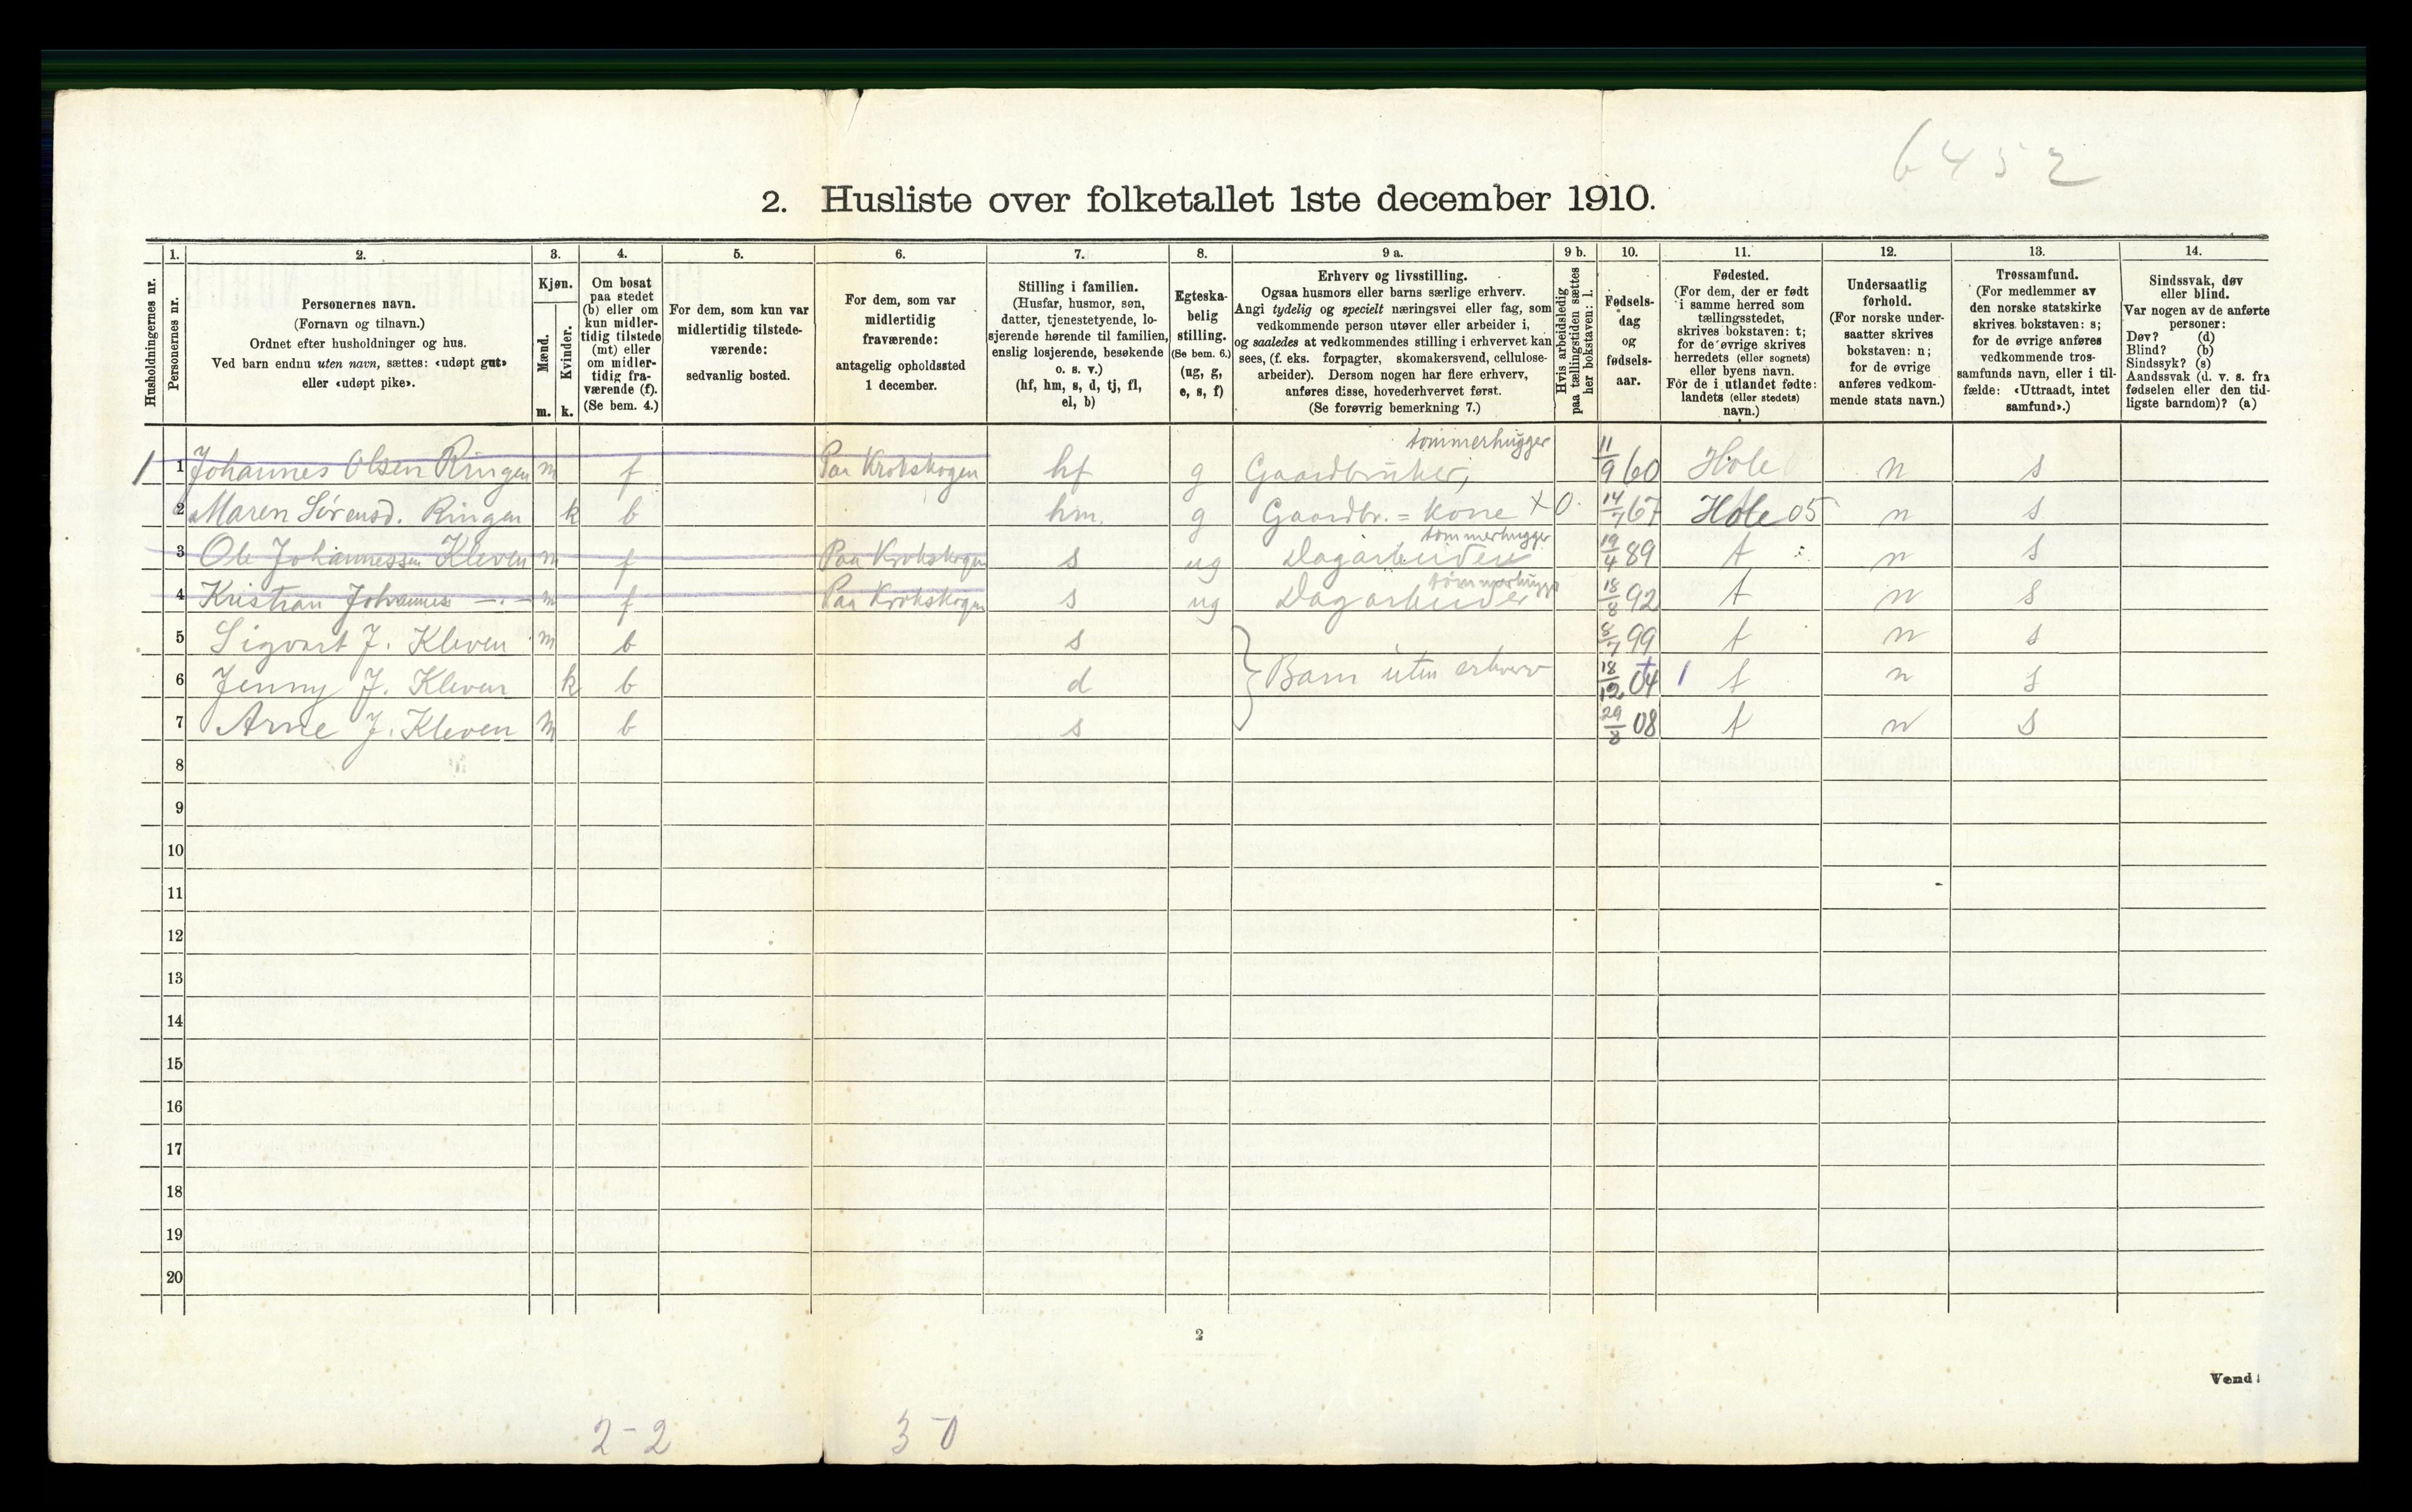 6452
2. Husliste over folketallet 1ste december 1910.
Husholdningernes nr.
1.
Personernes nr.
2.
Personernes navn.
(Fornavn og tilnavn.)
Ordnet efter husholdninger og hus.
Ved barn endnu uten navn, sættes: «udøpt gut»
eller «udøpt pike».
3.
Kjøn.
Mænd.
m.
Kvinder.
k.
4.
Om bosat
paa stedet
(b) eller om
kun midler-
tidig tilstede
(mt) eller
om midler-
tidig fra-
værende (f).
(Se bem. 4.)
5.
For dem, som kun var
midlertidig tilstede-
værende:
sedvanlig bosted.
6.
For dem, som var
midlertidig
fraværende:
antagelig opholdssted
1 december.
7.
Stilling i familien.
(Husfar, husmor, søn,
datter, tjenestetyende, lo-
sjerende hørende til familien,
enslig losjerende, besøkende
o. s. v.)
(hf, hm, s, d, tj, fl,
el, b)
8.
Egteska-
belig
stilling.
(Se bem. 6.)
(ug, g,
e, s, f)
9 a.
Erhverv og livsstilling.
Ogsaa husmors eller barns særlige erhverv.
Angi tydelig og specielt næringsvei eller fag, som
vedkommende person utøver eller arbeider i,
og saaledes at vedkommendes stilling i erhvervet kan
sees, (f. eks. forpagter, skomakersvend, cellulose-
arbeider). Dersom nogen har flere erhverv,
anføres disse, hovederhvervet først.
(Se forøvrig bemerkning 7.)
9 b.
Hvis arbeidsledig
paa tællingstiden sættes
her bokstaven: l.
10.
Fødsels-
dag
og
fødsels-
aar.
11.
Fødested.
(For dem, der er født
i samme herred som
tællingsstedet,
skrives bokstaven: t;
for de øvrige skrives
herredets (eller sognets)
eller byens navn.
For de i utlandet fødte:
landets (eller stedets)
navn.)
12.
Undersaatlig
forhold.
(For norske under-
saatter skrives
bokstaven: n;
for de øvrige
anføres vedkom-
mende stats navn.)
13.
Trossamfund.
(For medlemmer av
den norske statskirke
skrives bokstaven: s;
for de øvrige anføres
vedkommende tros-
samfunds navn, eller i til-
fælde: «Uttraadt, intet
samfund».)
14.
Sindssvak, døv
eller blind.
Var nogen av de anførte
personer:
Døv? (d)
Blind? (b)
Sindssyk? (s)
Aandssvak (d. v. s. fra
fødselen eller den tid-
ligste barndom)? (a)
1 1 Johannes Olsen Ringen m f Paa Krokskogen hf g Gaardbruker, tømmerhugger 11/9 60 Hole n s
2 Maren Sørensd. Ringen k b hm. g Gaardbr. = kone X 0. 14/7 67 Hole 05 n s
3 Ole Johannessen Kleven m f Paa Krokskogen s ug Dagarbeider tømmerhugger 19/4 89 t n s
4 Kristian Johannes —"— m f Paa Krokskogen s ug Dagarbeider tømmerhugger 18/8 92 t n s
5 Sigvart J. Kleven m b s 8/7 99 t n s
6 Jenny J. Kleven k b d Barn uten erhverv 18/12 04 1 t n s
7 Arne J. Kleven m b s 29/8 08 t n s
8
9
10
11
12
13
14
15
16
17
18
19
20
2
Vend!
2-2 3 0